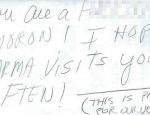 YOU ARE A
MORON! I HOP
ARMA VISITS YOU
FTEN!
(THIS IS P
FOR OUR